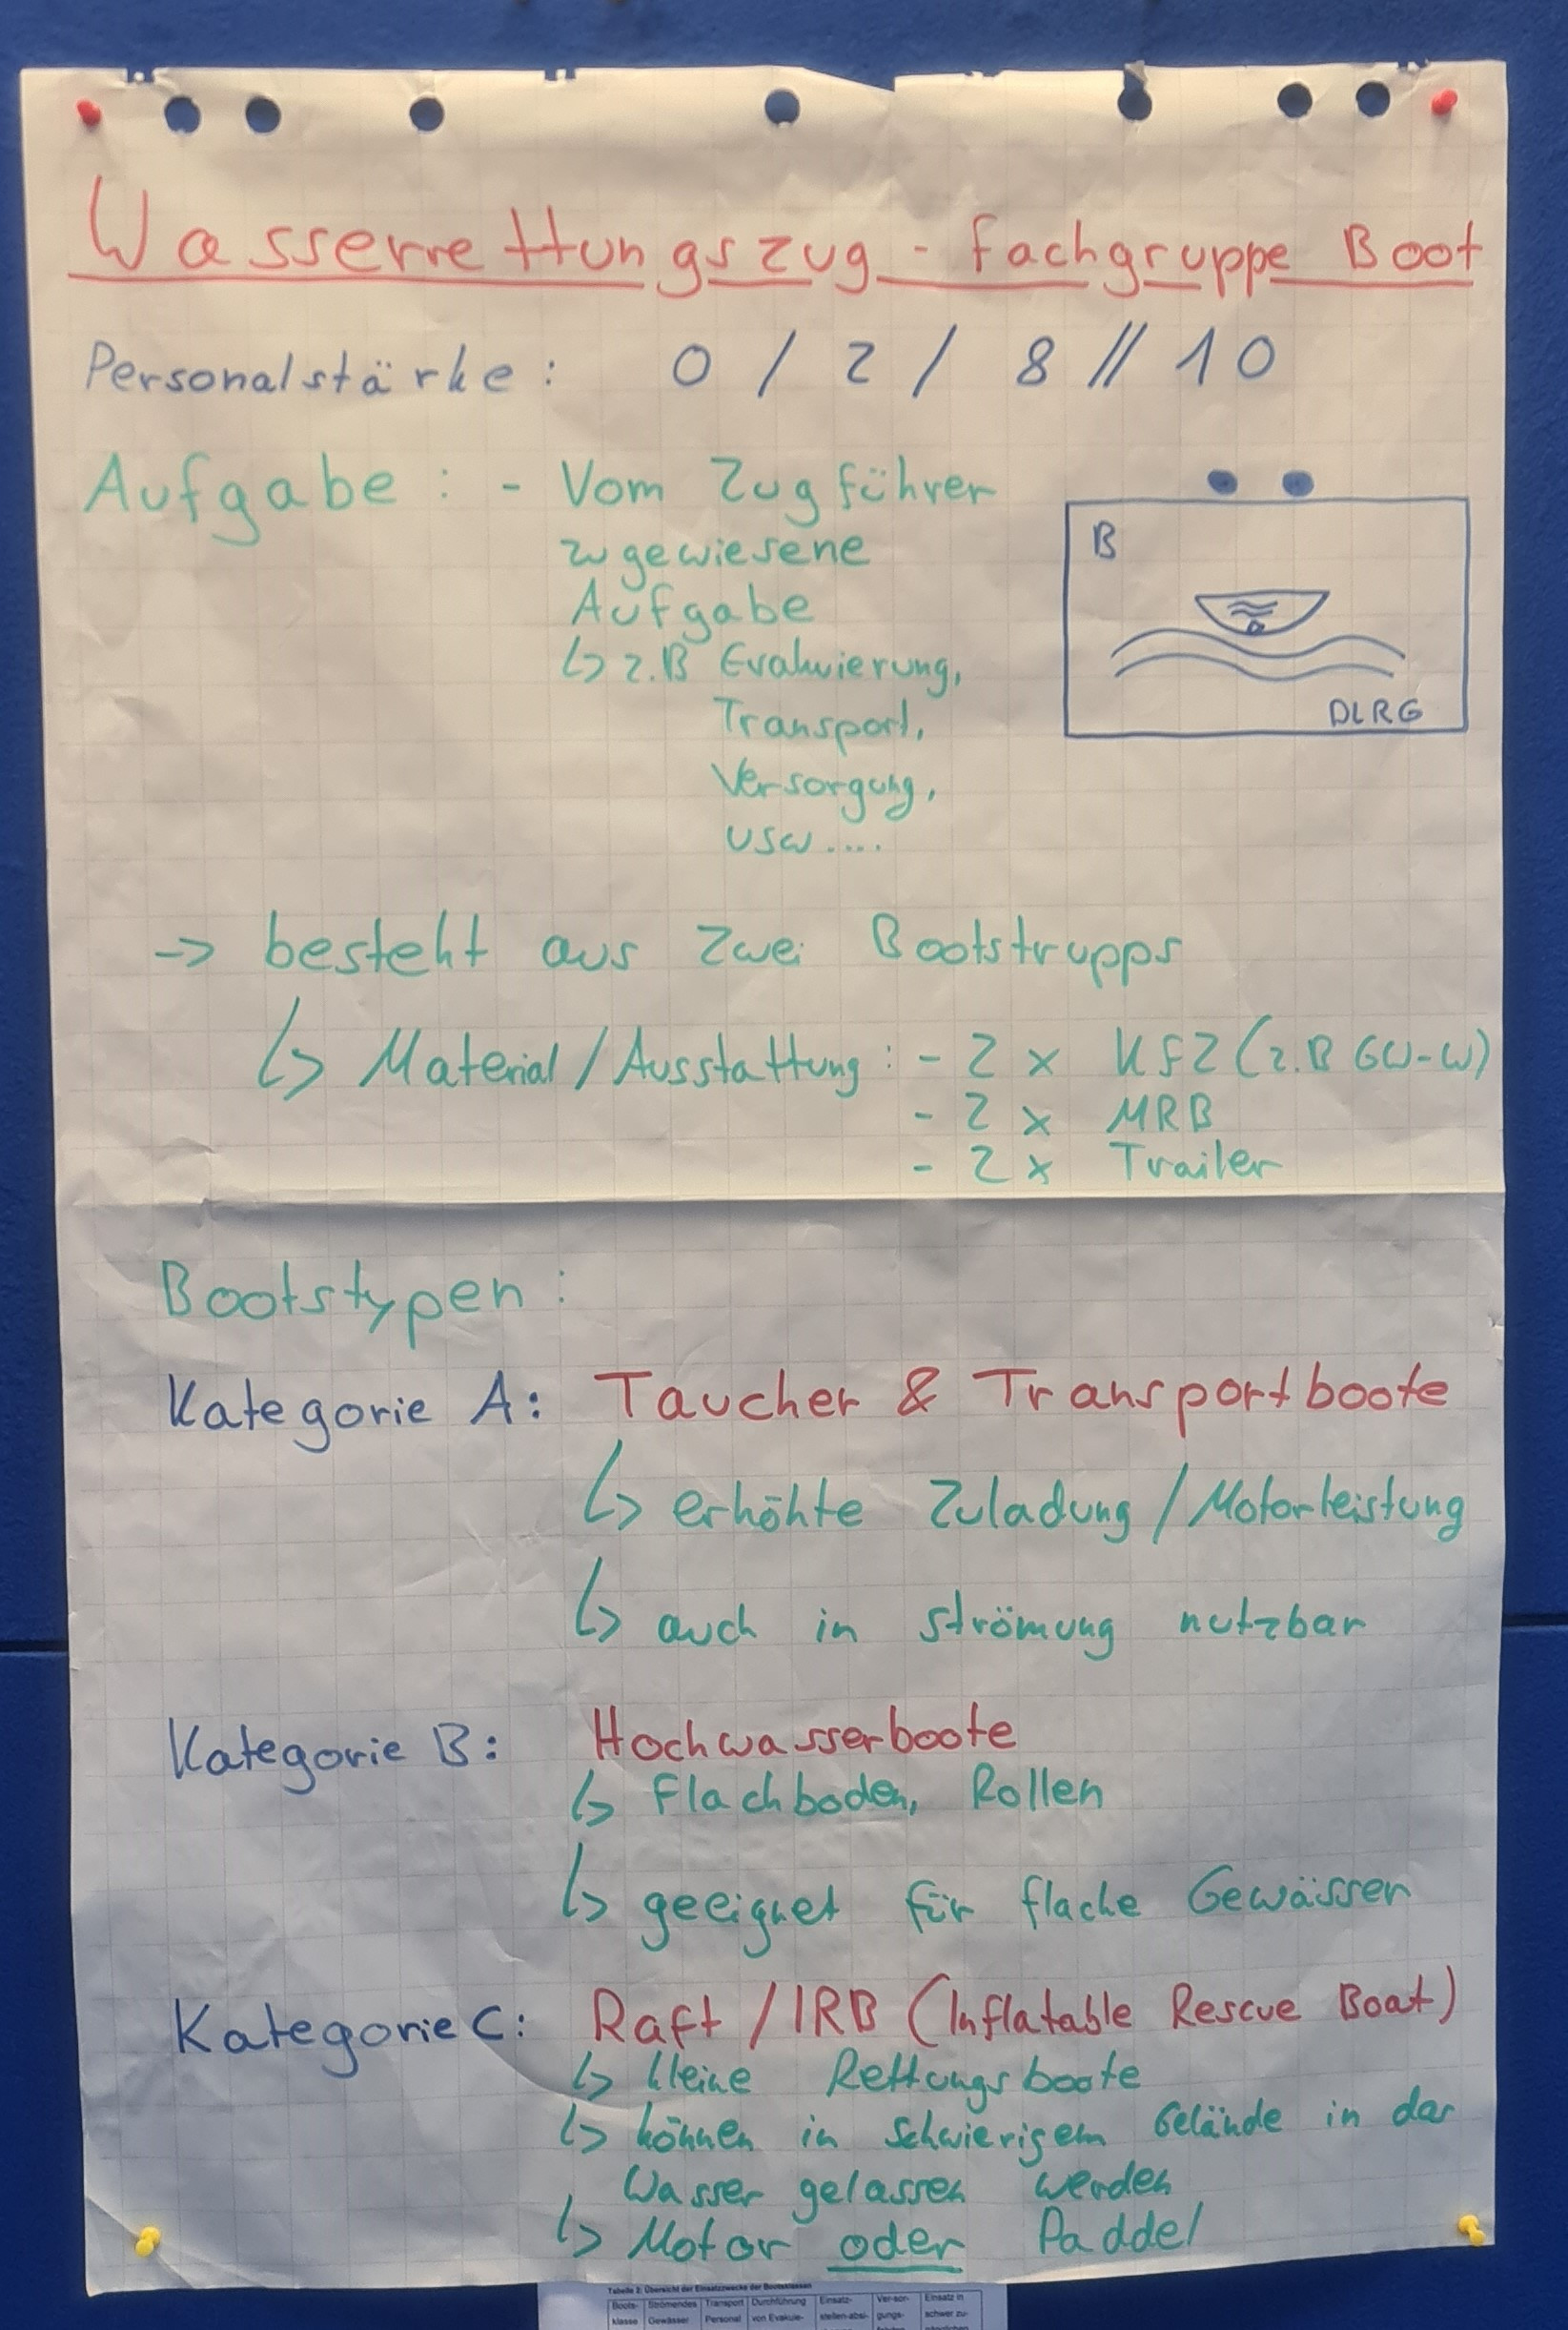 Wasserrettungszug - Fachgruppe Boot
Personalstärke: 0 / 2 / 8 // 10
Aufgabe: - Vom Zugführer
zugewiesene
Aufgabe
↳ z.B Evakuierung,
Transport,
Versorgung,
usw....
B
DLRG
-> besteht aus zwei Bootstrupps
↳ Material/Ausstattung: - 2 x KfZ (z.B GW-W)
- 2 x MRB
- 2 x Trailer
Bootstypen:
Kategorie A: Taucher & Transportboote
↳ erhöhte Zuladung / Motorleistung
↳ auch in strömung nutzbar
Kategorie B: Hochwasserboote
↳ Flachboden, Rollen
↳ geeignet für flache Gewässer
Kategorie C: Raft / IRB (Inflatable Rescue Boat)
↳ kleine Rettungsboote
↳ können in schwierigem Gelände in das
Wasser gelassen werden
↳ Motor oder Paddel
Tabelle 2: Übersicht der Einsatzzwecke der Bootsklassen
Boots- Strömendes Transport Durchführung Einsatz- Ver-sor- Einsatz in
klasse Gewässer Personal von Evakuie- stellen-absi- gungs- schwer zu-